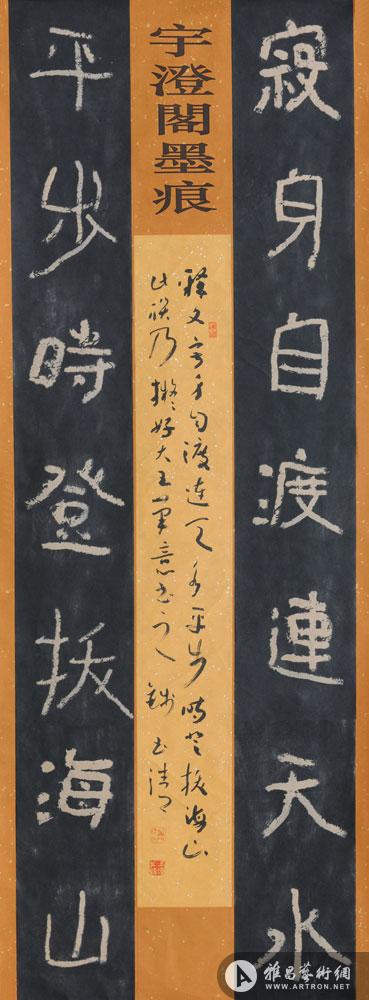 寂身自渡連天水
平步時登拔海山
宇澄閣墨痕
释文寂身自渡連天水平步時登拔海山
此联乃擬好大王筆意書之
雅昌藝術網
WWW.ARTRON.NET